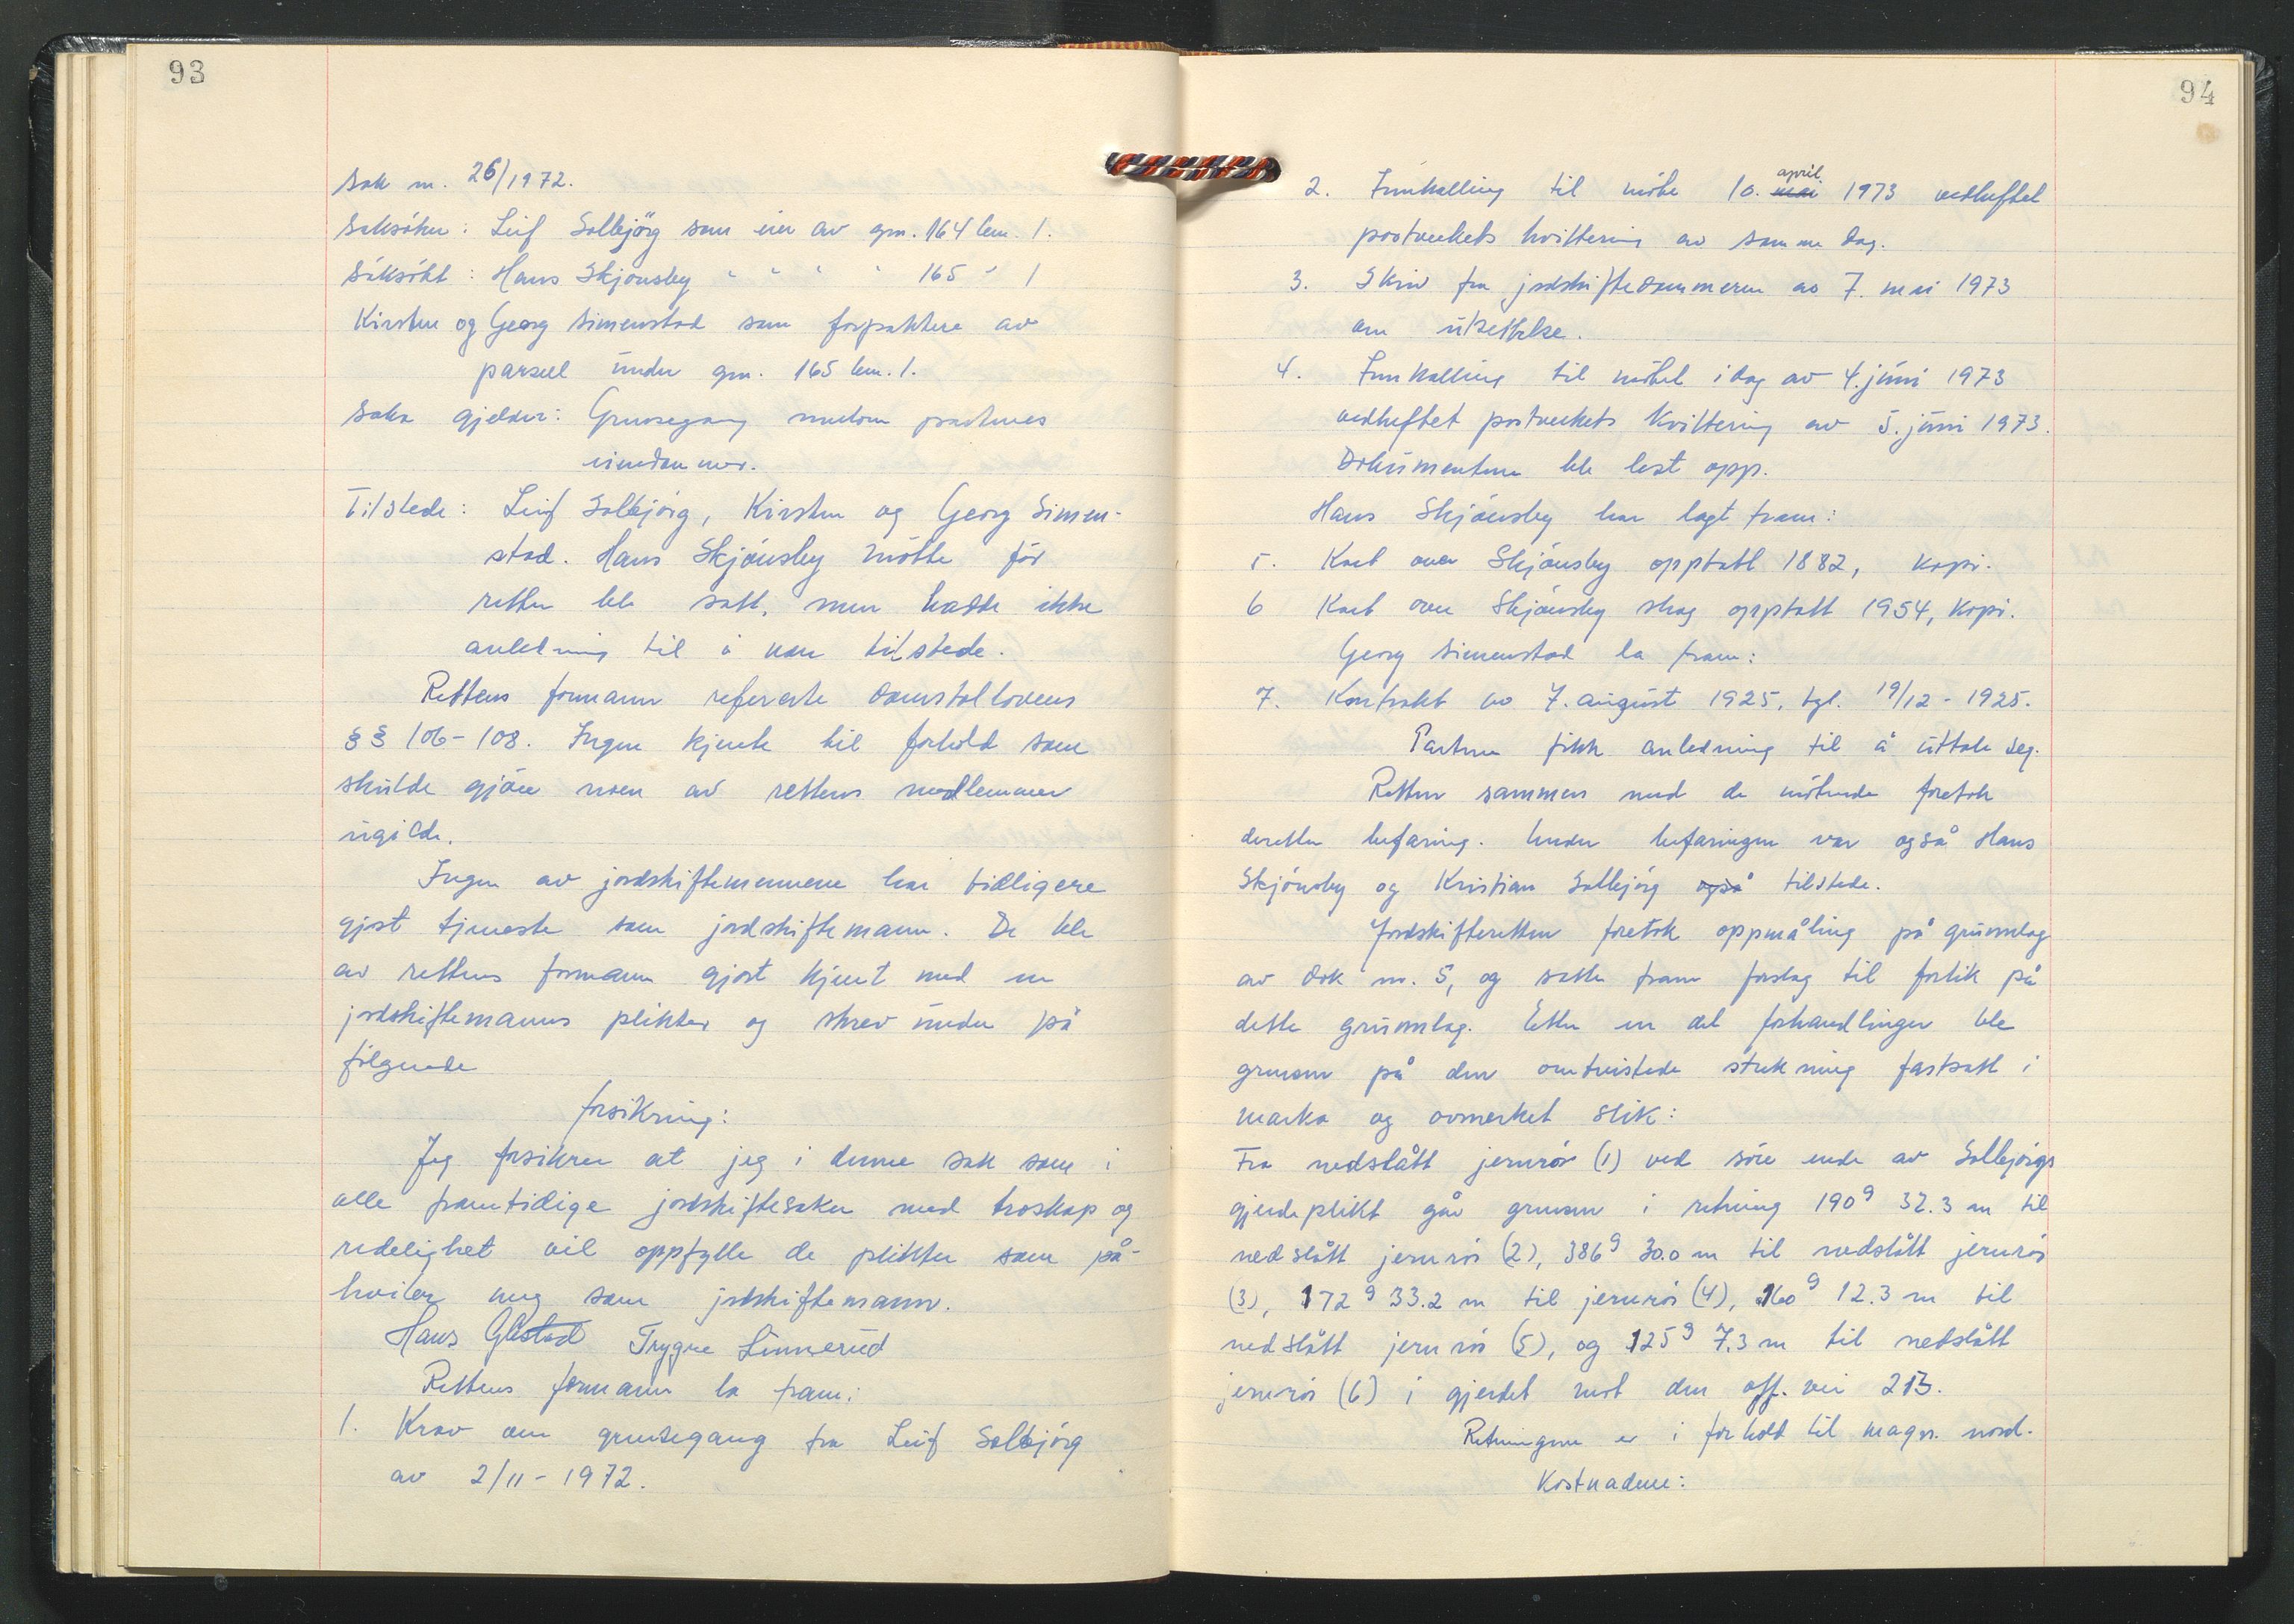 93
Sak nr. 26/1972.
Saksöker: Leif Solbjörg som eier av gnr. 164 bnr. 1.
Saksökt: Hans Skjönsby " " " " 165 " 1
Kirsten og Georg Simenstad som forpaktere av
parsell under gnr. 165 bnr. 1.
Saka gjelder: Grensegang mellom partenes
eiendommer.
Tilstede: Leif Solbjörg, Kirsten og Georg Simen-
stad. Hans Skjönsby mötte för
retten ble satt, men hadde ikke
anledning til å være tilstede.
Rettens formann refererte domstollovens
§§ 106-108. Ingen kjente til forhold som
skulde gjöre noen av rettens medlemmer
ugilde.
Ingen av jordskiftemennene har tidligere
gjort tjeneste som jordskiftemann. De ble
av rettens formann gjort kjent med en
jordskiftemanns plikter og skrev under på
fölgende
forsikring:
Jeg forsikrer at jeg i denne sak som i
alle framtidige jordskiftesaker med troskap og
redelighet vil oppfylle de plikter som på-
hviler meg som jordskiftemann.
Hans Glæstad Trygve Linnerud
Rettens formann la fram:
1. Krav om grensegang fra Leif Solbjörg
av 2/11-1972.
94
2. Innkalling til möte 10. mai april 1973 vedheftet
postverkets kvittering av samme dag.
3. Skriv fra jordskiftedommeren av 7. mai 1973
om utsettelse.
4. Innkalling til mötet i dag av 4. juni 1973
vedheftet postverkets kvittering av 5. juni 1973.
Dokumentene ble lest opp.
Hans Skjönsby har lagt fram:
5. Kart over Skjönsby opptatt 1882, kopi.
6 Kart over Skjönsby skog opptatt 1954, kopi.
Georg Simenstad la fram:
7. Kontrakt av 7. august 1925, tgl. 19/12-1925.
Partene fikk anledning til å uttale seg.
Retten sammen med de mötende foretok
deretter befaring. Under befaringen var også Hans
Skjönsby og Kristian Solbjörg også tilstede.
Jordskifteretten foretok oppmåling på grunnlag
av dok nr. 5, og satte fram forslag til forlik på
dette grunnlag. Etter en del forhandlinger ble
grensen på den omtvistede strekning fastsatt i
marka og avmerket slik:
Fra nedslått jernrör (1) ved söre ende av Solbjörgs
gjerdeplikt går grensen i retning 190g 32.3 m til
nedslått jernrör (2), 386g 30.0 m til nedslått jernrör
(3), 172g 33.2 m til jernrör (4), 160g 12.3 m til
nedslått jernrör (5), og 125g 7.3 m til nedslått
jernrör (6) i gjerdet mot den off. vei 213.
Retningene er i forhold til magn. nord.
Kostnadene: